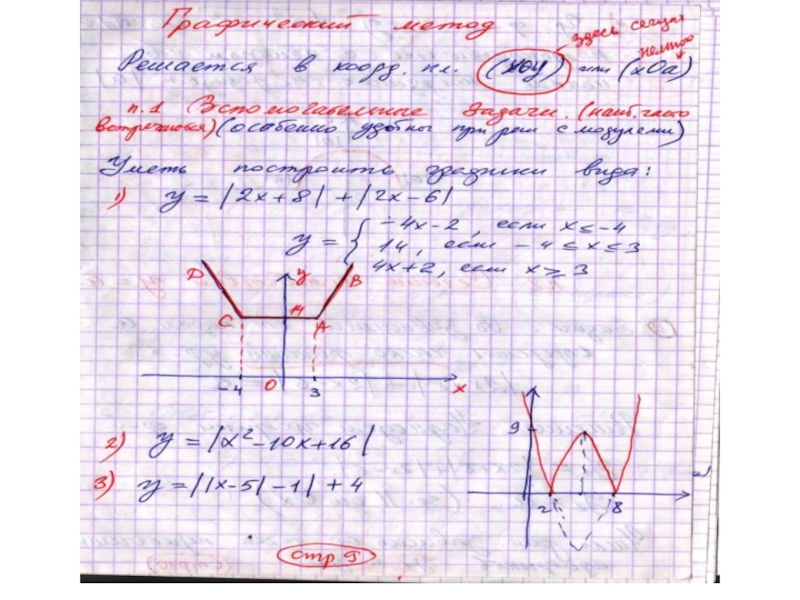 Графический метод
Решается в коорд. пл. (xOy) или (xOa)
здесь сегодня
п.1 Вспомогательные задачи. (наиб. часто
встречаются) (особенно удобног при реш с модулями)
Уметь построить графики вида:
1) y = |2x+8| + |2x-6|
y = { -4x-2, если x ≤ -4
14, если -4 ≤ x ≤ 3
4x+2, если x ≥ 3
D y B
C 14 A
-4 O 3 x
2) y = |x²-10x+16|
3) y = ||x-5|-1|+4
9
2 8
стр 9